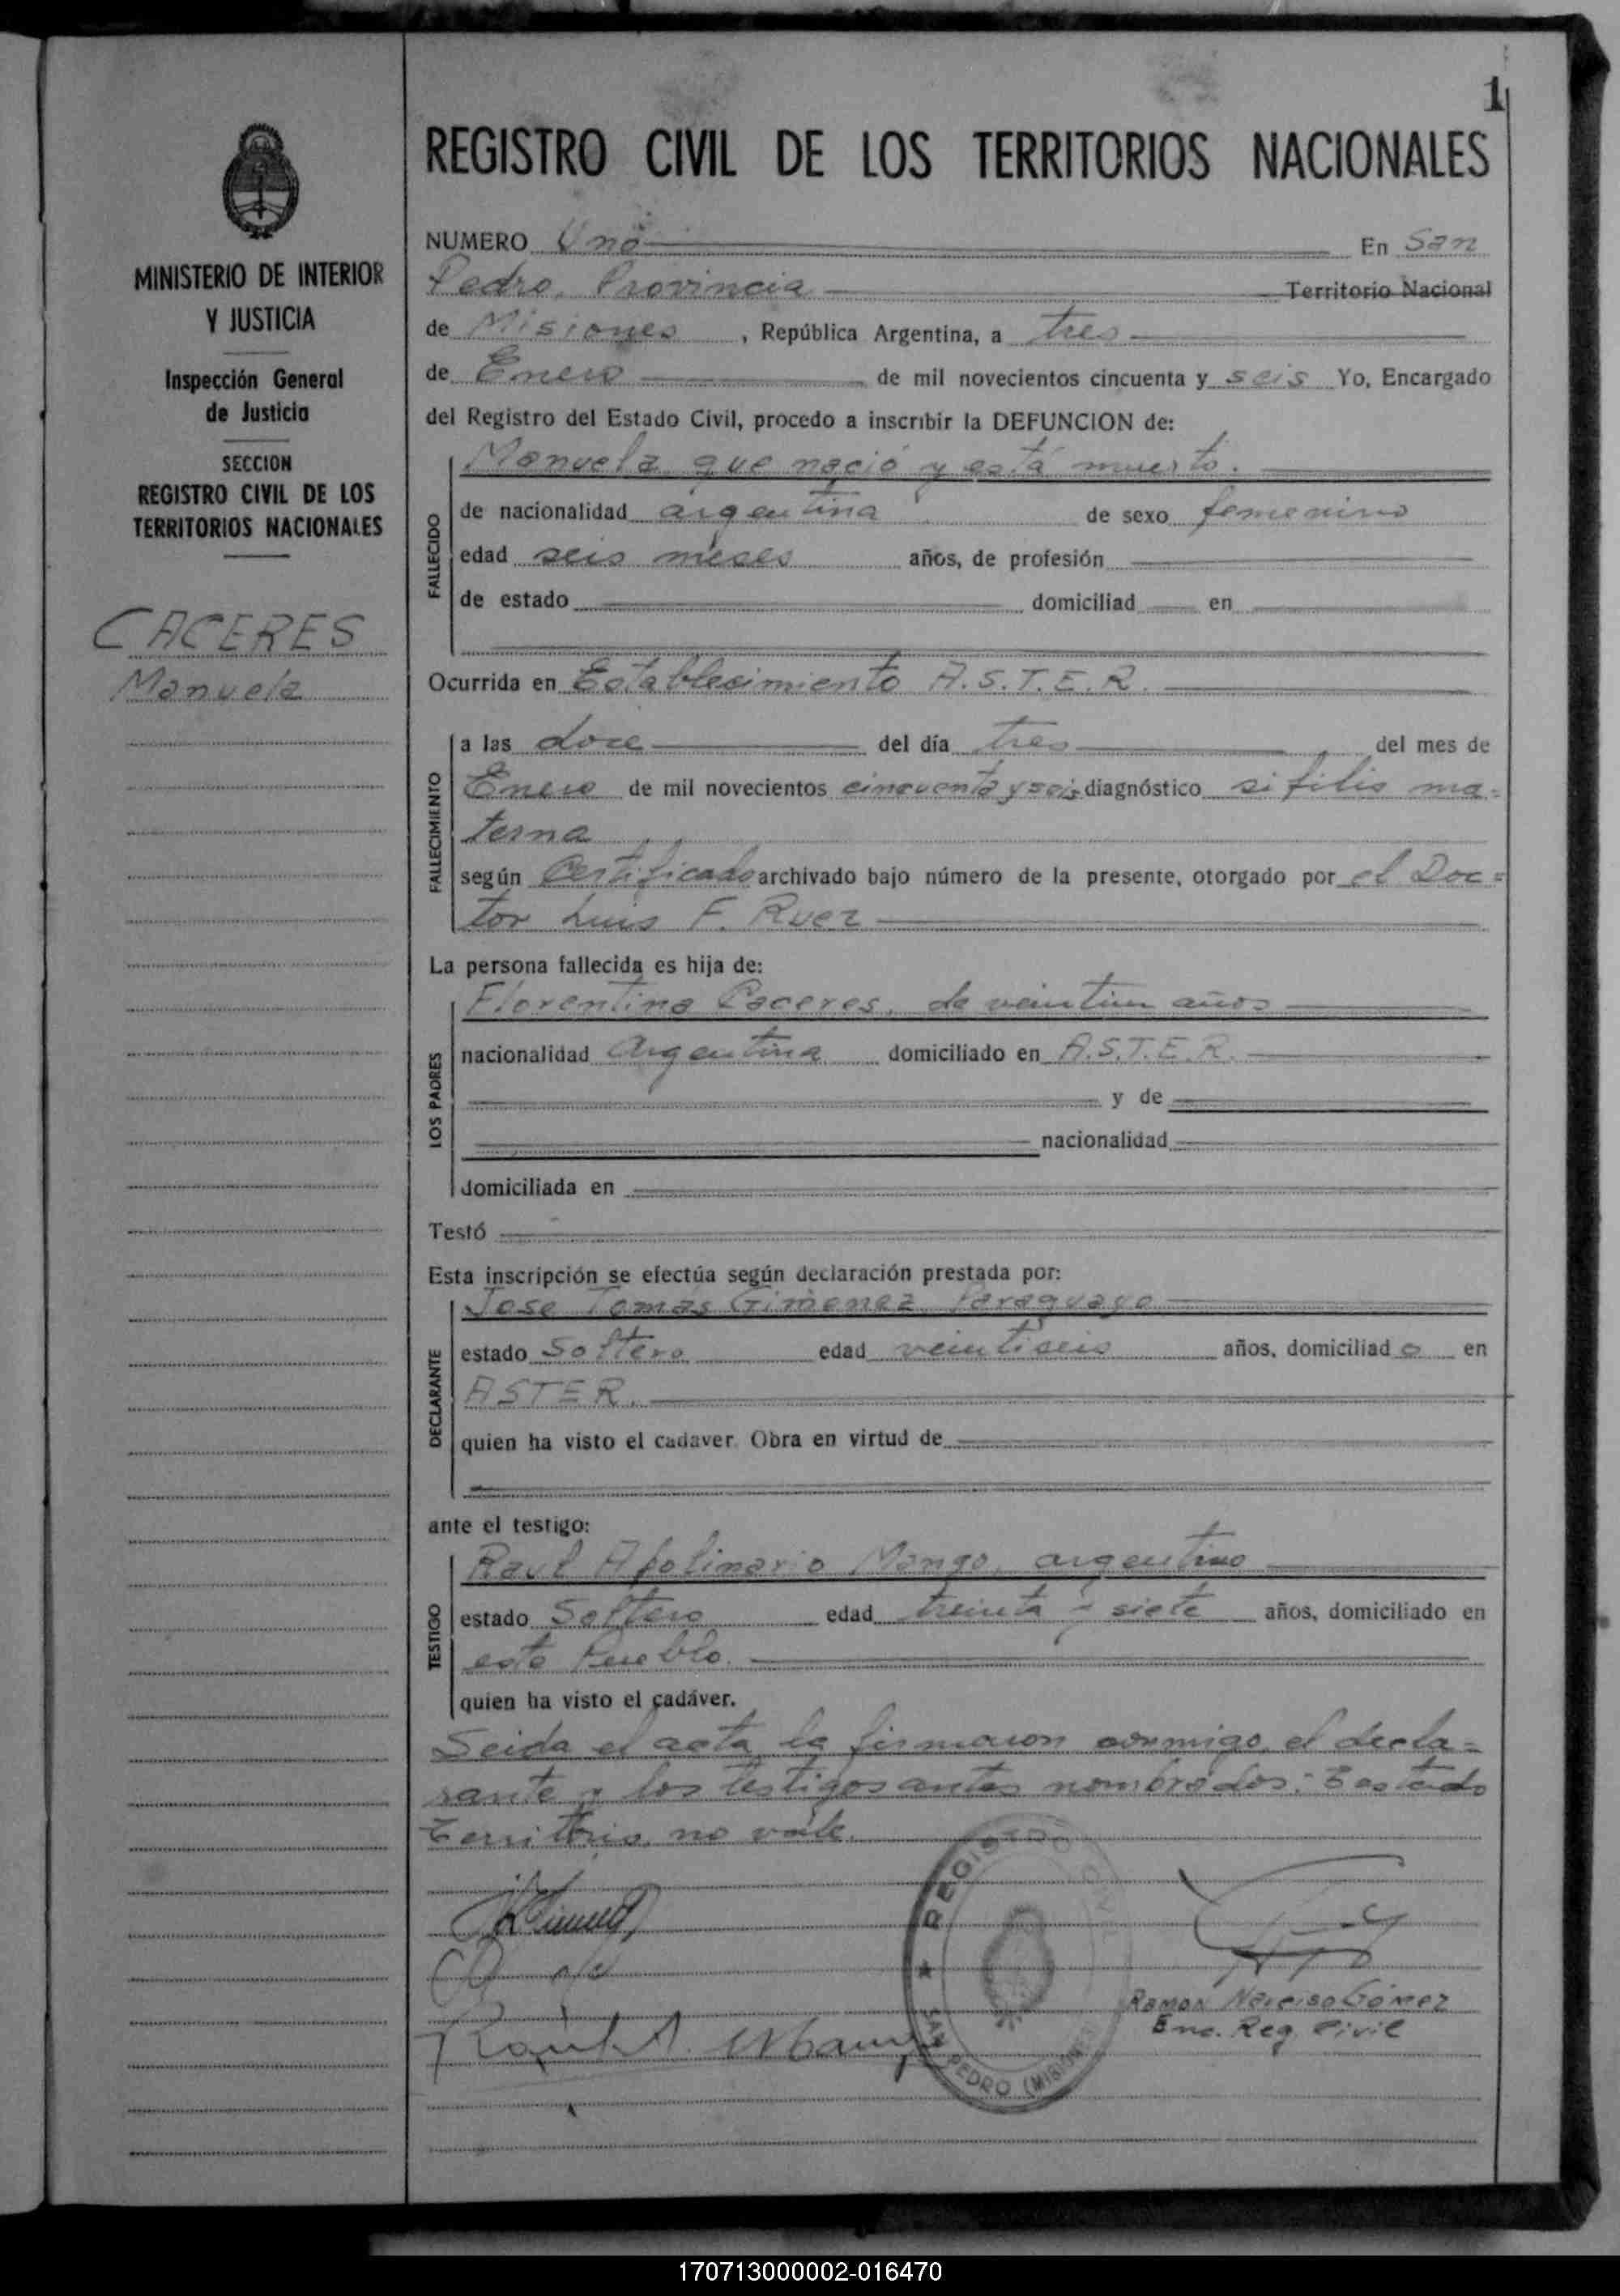 1
REGISTRO CIVIL DE LOS TERRITORIOS NACIONALES
MINISTERIO DE INTERIOR
Y JUSTICIA
Inspección General
de Justicia
SECCION
REGISTRO CIVIL DE LOS
TERRITORIOS NACIONALES
CACERES
Manuela
NUMERO Uno En San
Pedro, Provincia Territorio Nacional
de Misiones, República Argentina, a tres
de Enero de mil novecientos cincuenta y seis Yo, Encargado
del Registro del Estado Civil, procedo a inscribir la DEFUNCION de:
Manuela que nació y está muerta.
FALLECIDO
de nacionalidad argentina de sexo femenino
edad seis meses años, de profesión
de estado domiciliad en
Ocurrida en Establecimiento A.S.T.E.R.
FALLECIMIENTO
a las doce del día tres del mes de
Enero de mil novecientos cincuenta y seis diagnóstico sifilis ma=
terna
según Certificado archivado bajo número de la presente, otorgado por el Doc=
tor Luis F. Ruez
La persona fallecida es hija de:
LOS PADRES
Florentina Caceres, de veintiun años
nacionalidad Argentina domiciliado en A.S.T.E.R.
y de
nacionalidad
domiciliada en
Testó
Esta inscripción se efectúa según declaración prestada por:
DECLARANTE
Jose Tomás Gimenez, Paraguayo
estado Soltero edad veintiseis años, domiciliado en
ASTER.
quien ha visto el cadaver. Obra en virtud de
ante el testigo:
TESTIGO
Raul Apolinario Mango, argentino
estado Soltero edad treinta y siete años, domiciliado en
este Pueblo.
quien ha visto el cadáver.
Leida el acta, la firmaron conmigo, el decla=
rante y los testigos antes nombrados:
Territorio, no vale.
REGISTRO CIVIL
SAN PEDRO (MISIONES)
Ramon Narciso Gómez
Enc. Reg. Civil
170713000002-016470